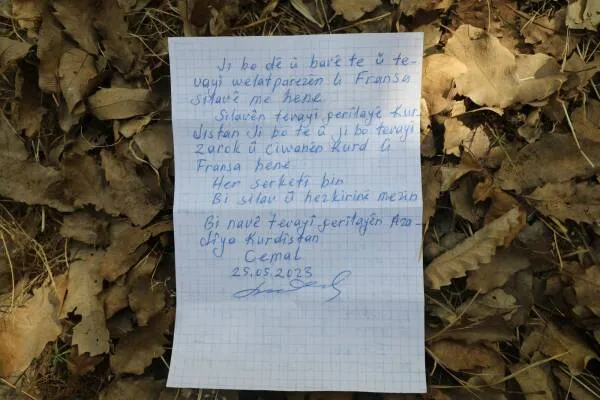 Ji bo dê û bavê te û te-
vayî welatparezên li Fransa
silavê me hene
Silavên tevayî gerîlayê Kur-
distan Ji bo te û ji bo tevayî
zarok û ciwanên Kurd li
Fransa hene
Her serketî bin
Bi silav û hezkirinê mezin
Bi navê tevayî gerîlayên Aza-
diya Kurdistan
Cemal
25.05.2023